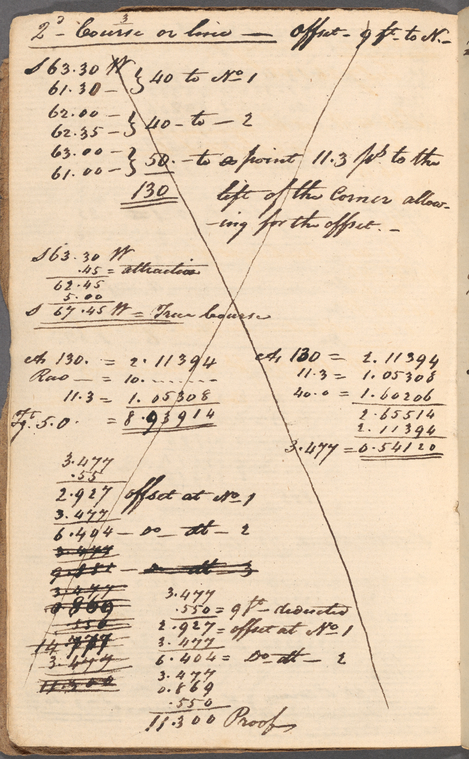 2d Course or line — Offset - 9 ft. to N.-
3
S 63.30 W } 40 to No 1
61.30 -
62.00 - } 40 - to - 2
62.35 -
63.00 - } 50. - to a point 11.3 to the
61.00 -
130 left of the Corner allow-
-ing for the offset. -
S 63.30 W
.45 = attraction
62.45
5.00
S 67.45 W = True Course
As 130. = 2.11394
Rad — = 10.--------
11.3 = 1.05308
Tg. 5.0. = 8.93914
As 130 = 2.11394
11.3 = 1.05308
40.0 = 1.60206
2.65514
2.11394
3.477 = 0.54120
3.477
.55
2.927 offset at No 1
3.477
6.404 - Do at - 2
3.477
Do at - 3
3.477
3.477
11.300
3.477
.550 = 9 ft. deducted
2.927 = offset at No 1
3.477
6.404 = Do at - 2
3.477
0.869
.550
11.300 Proof